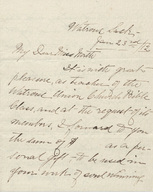 Watrous Sask—
June 23rd /12
My Dear Miss
It is with great
pleasure, as teacher of the
Watrous Union Church Bible
Class, and at the request of its
members, I forward to you
the sum of $ as a per-
sonal gift - to be used in
your work of soul winning.